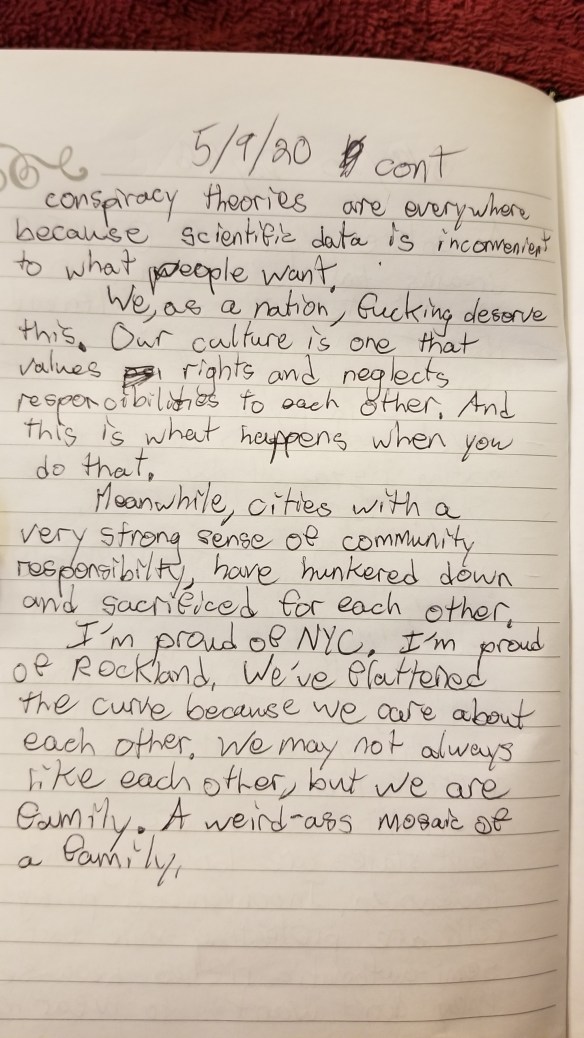 5/9/20 cont
conspiracy theories are everywhere
because scientific data is inconvenient
to what people want.
We, as a nation, fucking deserve
this. Our culture is one that
values rights and neglects
responsibilities to each other. And
this is what happens when you
do that.
Meanwhile, cities with a
very strong sense of community
responsibilty, have hunkered down
and sacrificed for each other.
I'm proud of NYC. I'm proud
of Rockland. We've flattened
the curve because we care about
each other. We may not always
like each other, but we are
family. A weird-ass mosaic of
a family.